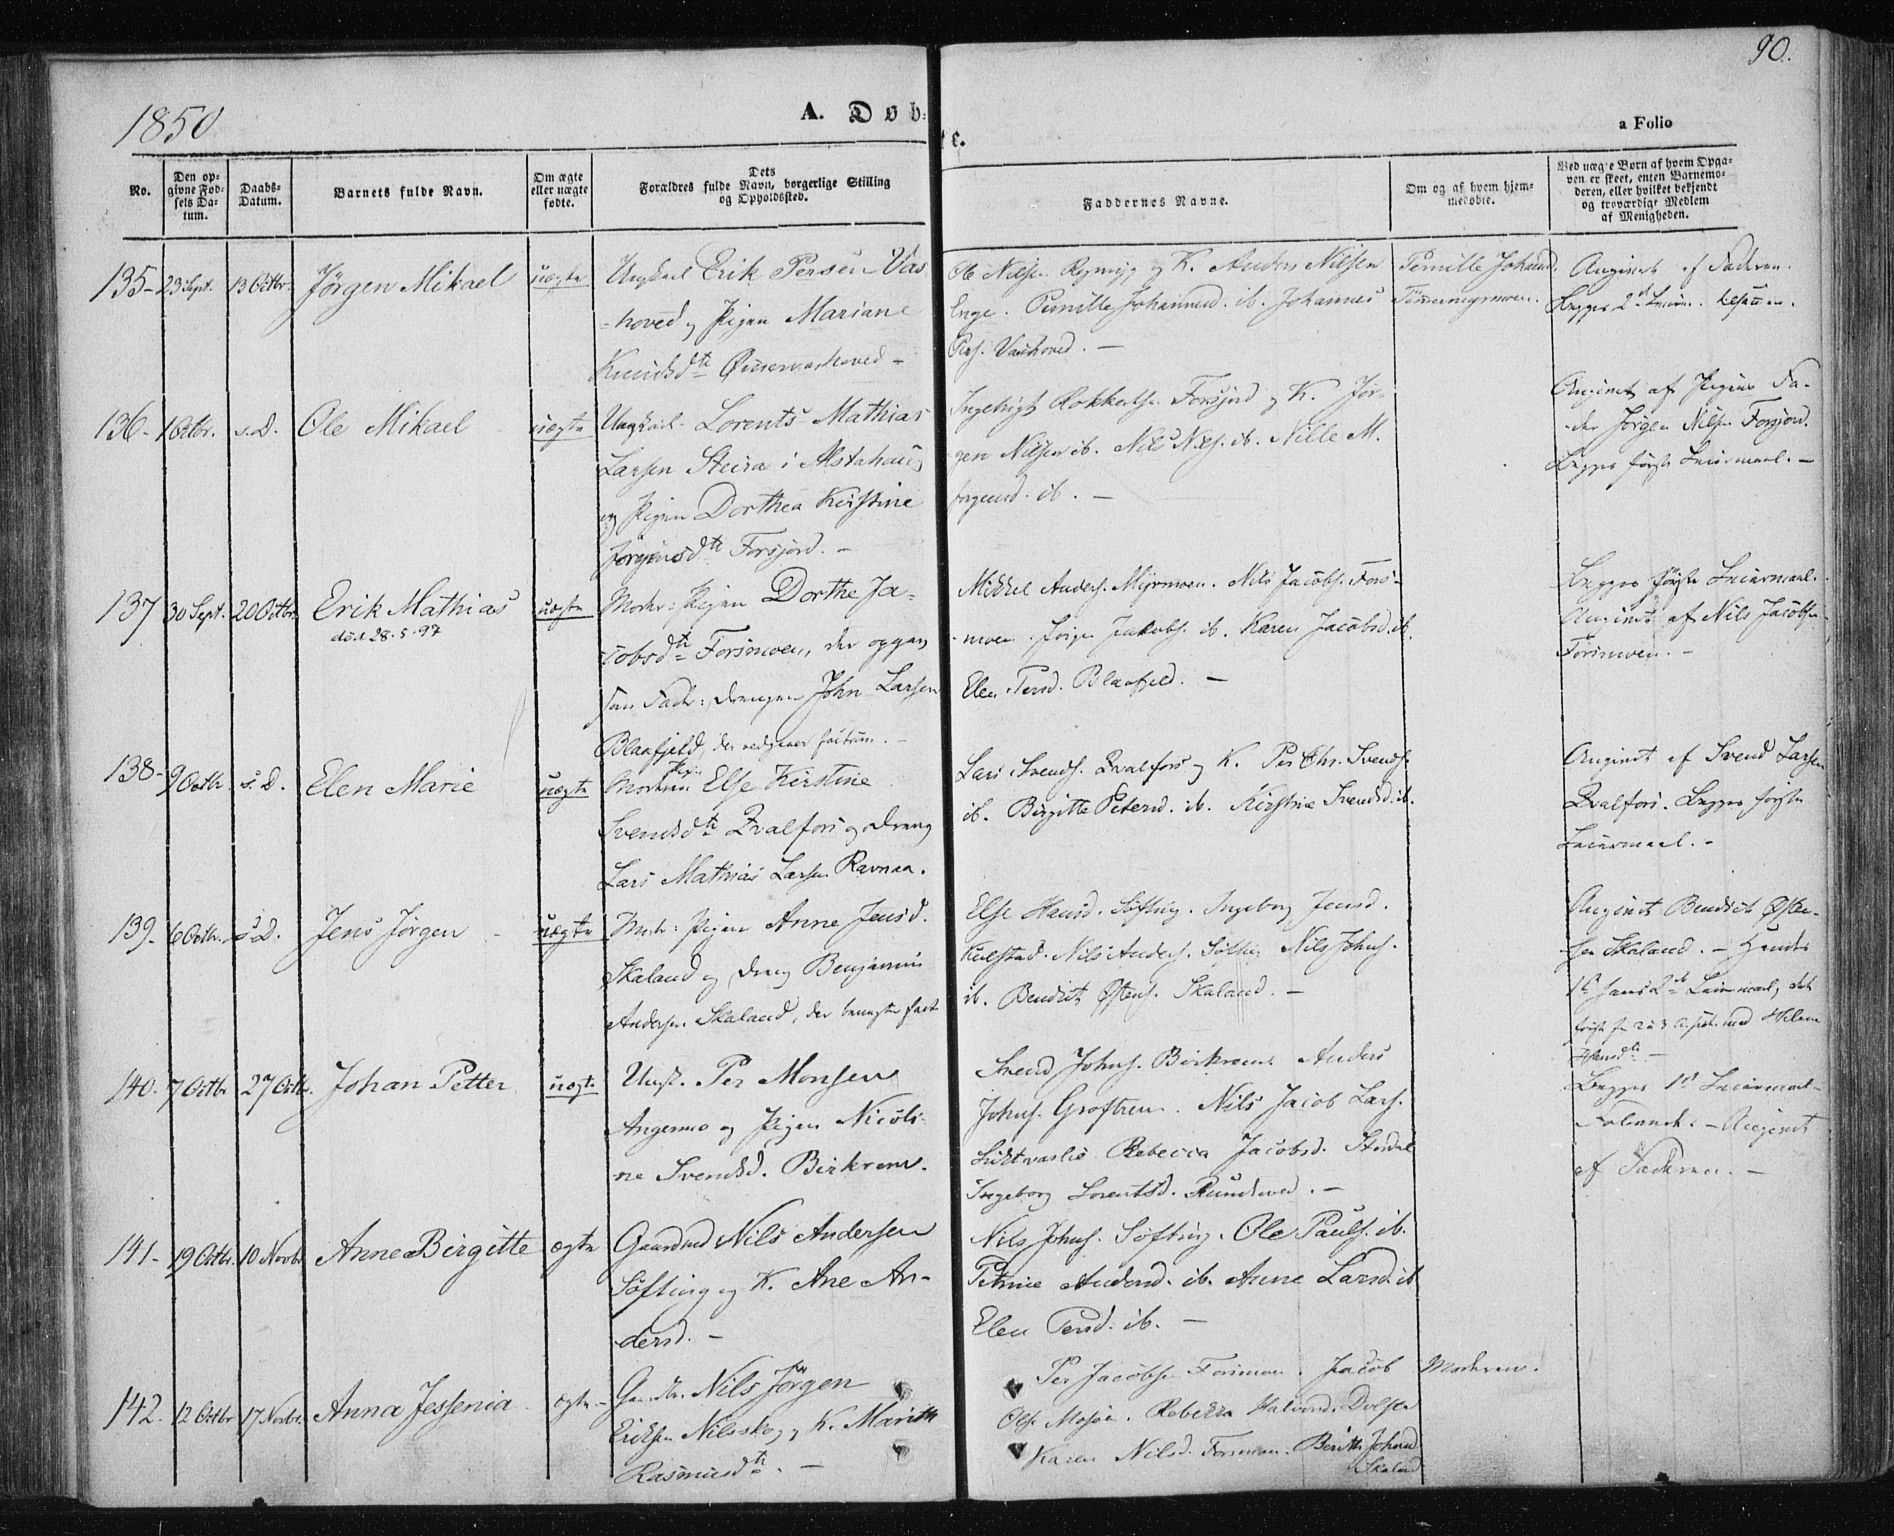 1850
A. Døb-
te.
a Folio
90.
No.
Den op-
givne Fød-
sels Da-
tum.
Daabs-
Datum.
Barnets fulde Navn.
Om ægte
eller uægte
fødte.
Dets
Forældres fulde Navn, borgerlige Stilling
og Opholdssted.
Faddernes Navne.
Om og af hvem hjem-
medøbte.
Ved uægte Børn af hvem Opga-
ven er skeet, enten Barnemo-
deren, eller hvilket bekjendt
og troværdigt Medlem
af Menigheden.
135- 23 Sept. 13 Octbr. Jörgen Mikael uægte
Ungkarl Erik Persen Vas-
hoved og Pigen Mariane
Knudsdtr
Ole Nilsen og K. Anders Nilsen
Enge. Pernille Johannesd. ib. Johannes
Pers. Vashoved. —
Pernille Johannesd.
Angivet af Faderen.
Begges 2d Leierm.
136- 1 Octbr. s. D. Ole Mikael uægte
Ungkarl Lorents Mathias
Larsen Steira i Alstahaug
og Pigen Dorthea Kirstine
Jørgensdtr Forsjord. —
Ingebrigt Forsjord og K. Jör-
gen Nilsen ib. Nils Nils. ib. Nille M.
Jørgensd. ib. —
Angivet af Pigens Fa-
der Jörgen Nilsen Forsjord.
Begges første Leiermaal. —
137 30 Sept. 20 Octbr. Erik Mathias uægte
död 28.5.97
Moder: Pigen Dorthe Ja-
cobsdtr Forsmoen, der opgav
som Fader: Drengen John Larsen
Blaafjeld, der vedgaaer factum. —
Mikkel Anders. Myrmoen. Nils Jacobs. Fors-
moen. Jakobs. ib. Karen Jacobsd. ib.
Elen Persd. Blaafjeld. —
Begges første Leiermaal.
Angivet af Nils Jacobsen
Forsmoen. —
138- 9 Octbr s. D. Elen Marie uægte
Moderen Pigen Else Kirstine
Svendsdtr Kvalfors og Dreng
Lars Mathias Larsen Ravnaa.
Lars Svends. Kvalfors og K. Per Chr. Svends.
ib. Birgitte Petersd. ib. Kirstine Svendsd. ib.
Angivet af Svend Larsen
Kvalfors. Begges første
Leiermaal. —
139- 6 Octbr. s. D. Jens Jörgen - uægte
Moder: Pigen Anne Jensd.
Skaland og Dreng Benjamin
Andersen Skaland,
Else Hansd. Söfting. Ingeborg Jensd.
Kulstad. Nils Anders. Söfting Nils Johns.
ib. Bendict Östens. Skaland. —
Angivet Bendict Östen-
sen Skaland. — Hendes
1ste hans 2det Leiermaal, det
første med Helene
Hansdtr —
140. 7 Octbr 27 Octbr. Johan Petter uægte
Ungk. Per Monsen
Angermo og Pigen Nicoli-
ne Svendsd. Birkrem.
Svend Johns. Birkrem. Anders
Johns. Grøftrem. Nils Jacob Lars.
Rebecca Jacobsd.
Ingeborg Lorentsd. —
Begges 1st Leiermaal
— Angivet
af Faderen. —
141- 19 Octbr. 10 Novbr. Anne Birgitte ægte
Gaardmd Nils Andersen
Söfting og K. Ane An-
dersd. —
Nils Johns. Söfting. Ole Pauls. ib.
Petrine Andersd. ib. Anne Larsd. ib
Elen Persd. ib. —
142. 12 Octbr 17 Novbr. Anna Jessenia ægte -
Nils Jörgen
Eriksen Nilsskog og K. Marith
Rasmusdtr. —
Per Jacobsen Forsmoen. Jacob
Ols. Mosjøen. Rebekka Halvorsd. Dolsta
Karen Nilsd. Forsmoen. Berith Johnsd
Skaland
Moderen.